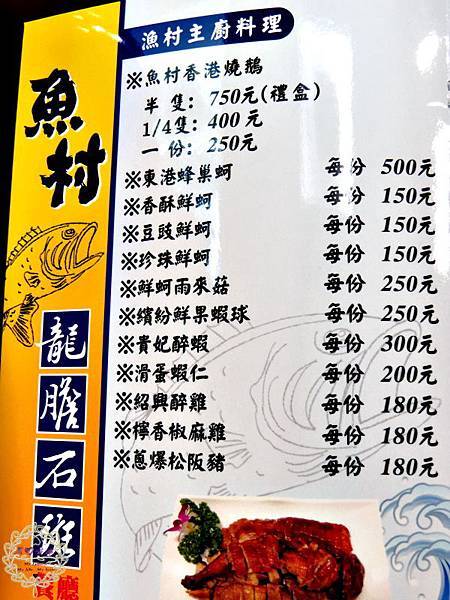 魚村
龍膽石斑
餐廳
漁村主廚料理
※魚村香港燒鵝
半 隻: 750元(禮盒)
1/4隻: 400元
一 份: 250元
※東港蜂巢蚵 每份 500元
※香酥鮮蚵 每份 150元
※豆豉鮮蚵 每份 150元
※珍珠鮮蚵 每份 150元
※鮮蚵雨來菇 每份 250元
※繽紛鮮果蝦球 每份 250元
※貴妃醉蝦 每份 300元
※滑蛋蝦仁 每份 200元
※紹興醉雞 每份 180元
※檸香椒麻雞 每份 180元
※蔥爆松阪豬 每份 180元